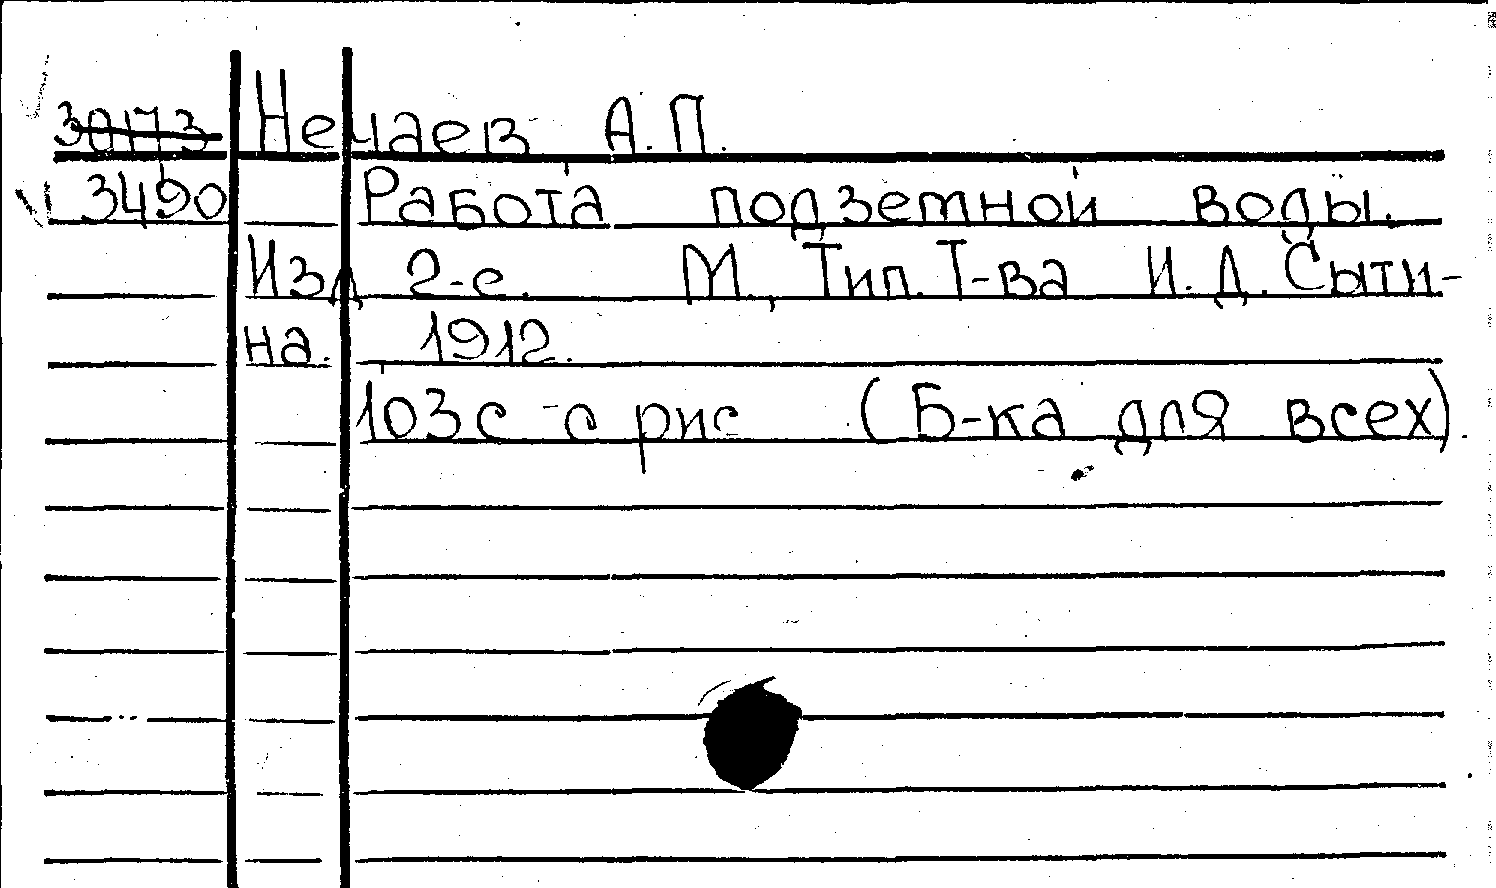 3073 Нечаев А.П.
3490 Работа подземной воды.
Изд 2-е. М., Тип. Т-ва И. Д. Сыти-
на. 1912.
103с с рис (Б-ка для всех).